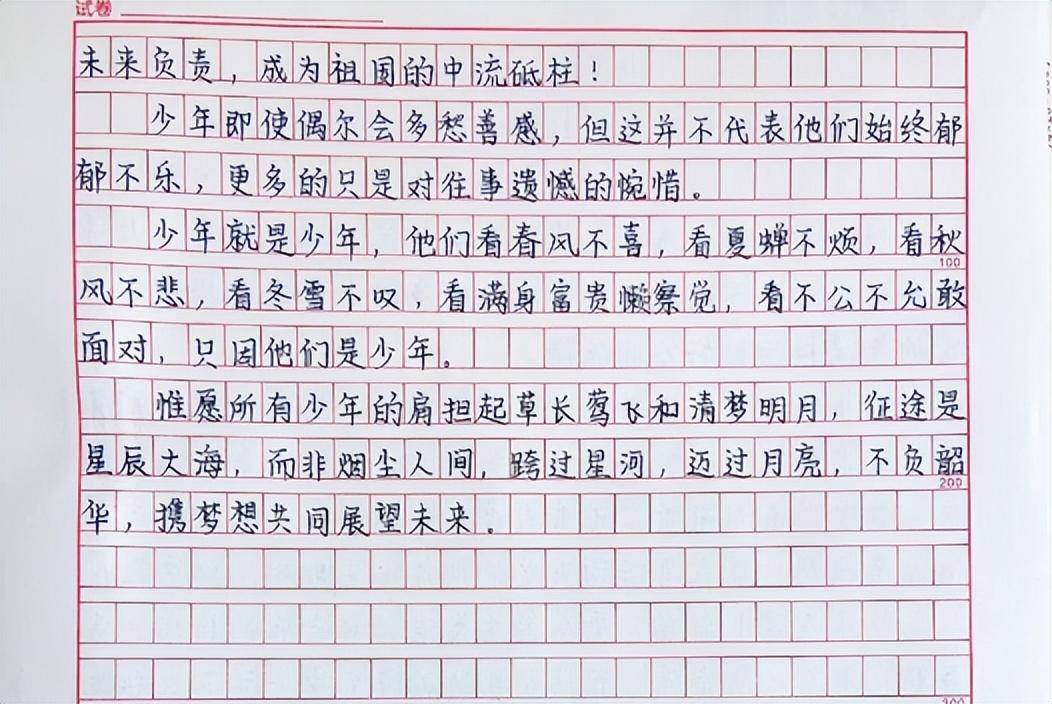 试卷
未来负责，成为祖国的中流砥柱！
少年即使偶尔会多愁善感，但这并不代表他们始终郁
郁不乐，更多的只是对往事遗憾的惋惜。
少年就是少年，他们看春风不喜，看夏蝉不烦，看秋
100
风不悲，看冬雪不叹，看满身富贵懒察觉，看不公不允敢
面对，只因他们是少年。
惟愿所有少年的肩担起草长莺飞和清梦明月，征途是
星辰大海，而非烟尘人间，跨过星河，迈过月亮，不负韶
200
华，携梦想共同展望未来。
300